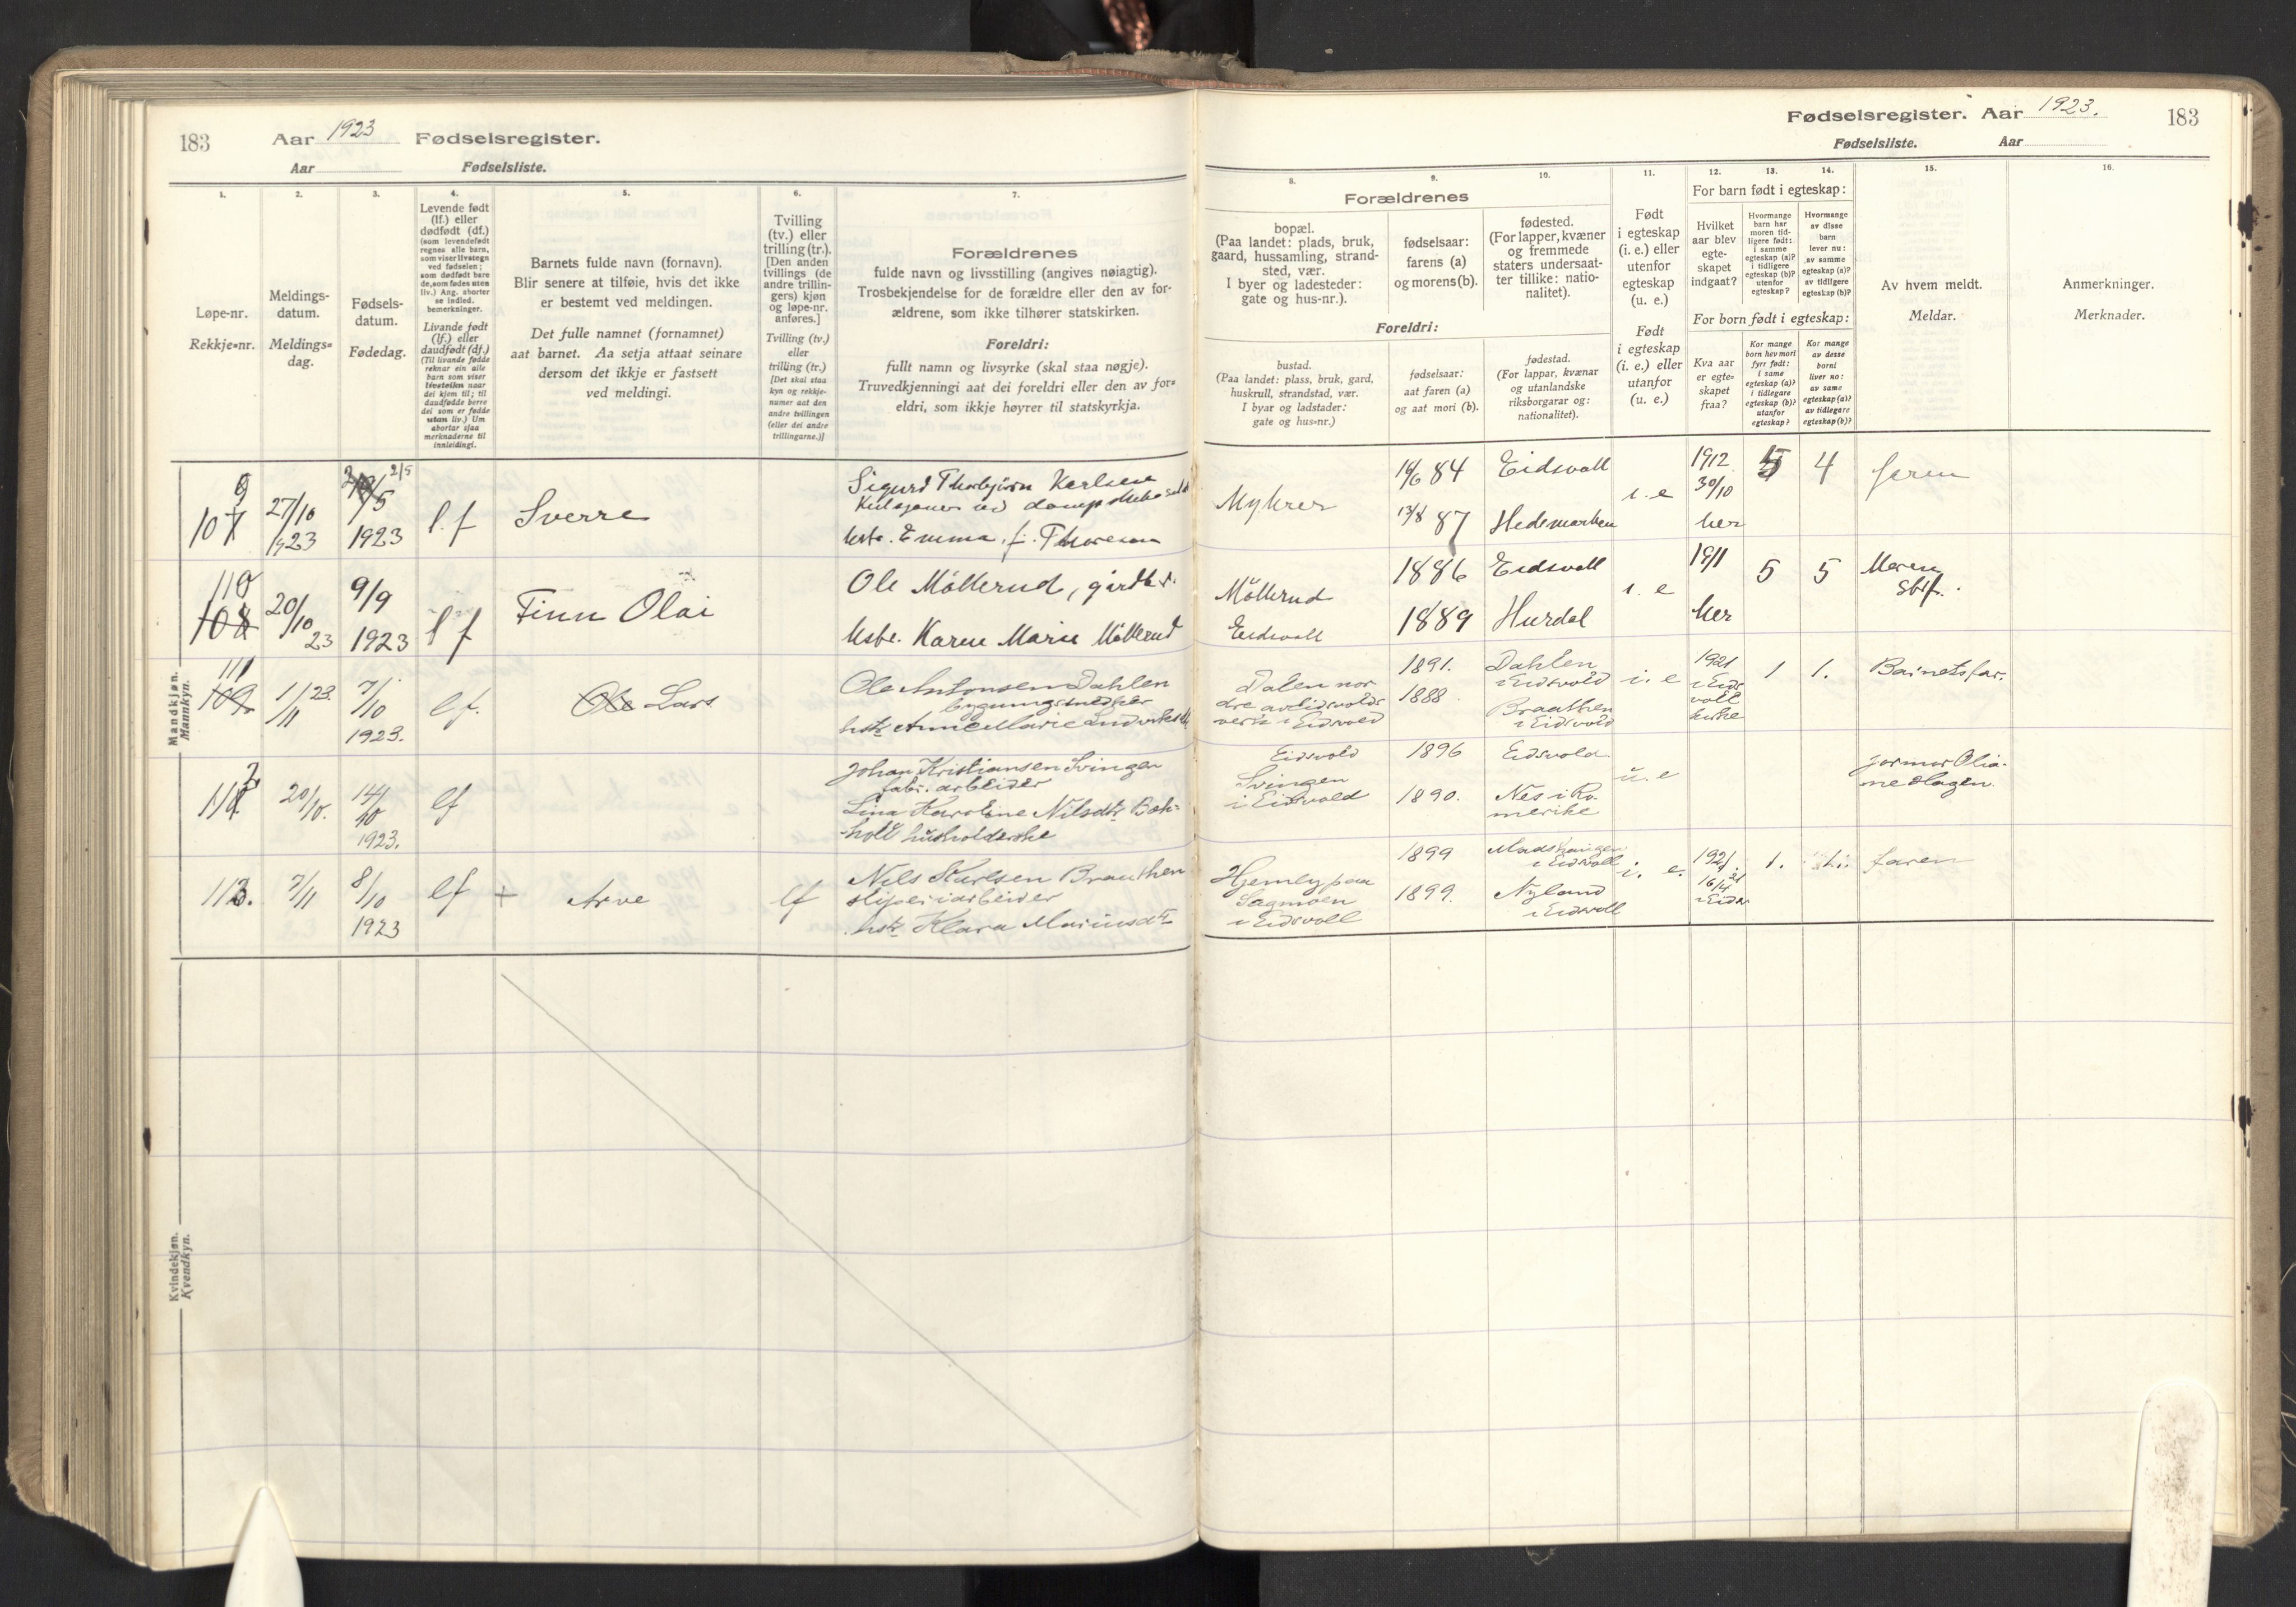 183
Aar 1923 Fødselsregister.
Aar Fødselsliste.
1. 2. 3. 4. 5. 6. 7.
Løpe-nr.
Rekkje-nr.
Meldings-
datum.
Meldings-
dag.
Fødsels-
datum.
Fødedag.
Levende født
(lf.) eller
dødfødt (df.)
(som levendefødt
regnes alle barn,
som viser livstegn
ved fødselen;
som dødfødt bare
de, som fødes uten
liv.) Ang. aborter
se indled.
bemerkninger.
Livande født
(lf.) eller
daudfødt (df.)
(Til livande fødde
reknar ein alle
barn som viser
livsteikn naar
dei kjem til; til
daudfødde berre
dei som er fødde
utan liv.) Um
abortar sjaa
merknaderne til
innleidingi.
Barnets fulde navn (fornavn).
Blir senere at tilføie, hvis det ikke
er bestemt ved meldingen.
Det fulle namnet (fornamnet)
aat barnet. Aa setja attaat seinare
dersom det ikkje er fastsett
ved meldingi.
Tvilling
(tv.) eller
trilling (tr.).
[Den anden
tvillings (de
andre trillin-
gers) kjøn
og løpe-nr.
anføres.]
Tvilling (tv.)
eller
trilling (tr.)
[Det skal staa
kyn og rekkje-
numer aat den
andre tvillingen
(eller dei andre
trillingarne.)]
Forældrenes
fulde navn og livsstilling (angives nøiagtig).
Trosbekjendelse for de forældre eller den av for-
ældrene, som ikke tilhører statskirken.
Foreldri:
fullt namn og livsyrke (skal staa nøgje).
Truvedkjenningi aat dei foreldri eller den av for-
eldri, som ikkje høyrer til statskyrkja.
Mandkjøn.
Mannkyn.
9
107
27/10
1923
2/5
1923
l.f
Sverre
Sigurd Thorbjörn Karlsen
hstr. Emma f. Thoresen
110
108
20/10
23
9/9
1923
l f
Finn Olai
Ole Möllerud, gårdbr.
hstr. Karen Marie Möllerud
111
109.
1/11 23.
7/10
1923.
lf.
Ole Lars
Ole Antonsen Dahlen
bygningssnedker
hstr Anne Marie Ludvigsdtr
112
20/10.
14/10
1923.
lf
Johan Kristiansen Svingen
fabr. arbeider
Lina Karoline Nilsdtr Bøh-
holt husholderske
113.
7/11
8/10
1923
lf
+ Arve
lf
Nils Karlsen Braathen
sliperiarbeider
hstr Klara Mariusdtr
Kvindekjøn.
Kvendkyn.
Fødselsregister. Aar 1923. 183
Fødselsliste. Aar
8. 9. 10. 11. 12. 13. 14. 15. 16.
Forældrenes
bopæl.
(Paa landet: plads, bruk,
gaard, hussamling, strand-
sted, vær.
I byer og ladesteder:
gate og hus-nr.).
fødselsaar:
farens (a)
og morens (b).
fødested.
(For lapper, kvæner
og fremmede
staters undersaat-
ter tillike: natio-
nalitet).
Foreldri:
bustad.
(Paa landet: plass, bruk, gard,
huskrull, strandstad, vær.
I byar og ladstader:
gate og hus-nr.)
fødselsaar:
aat faren (a)
og aat mori (b).
fødestad.
(For lappar, kvænar
og utanlandske
riksborgarar og:
nationalitet).
Født
i egteskap
(i. e.) eller
utenfor
egteskap
(u. e.)
Født
i egteskap
(i. e.) eller
utanfor
(u. e.)
For barn født i egteskap:
Hvilket
aar blev
egte-
skapet
indgaat?
Hvormange
barn har
moren tid-
ligere født:
i samme
egteskap (a)?
i tidligere
egteskap (b)?
utenfor
egteskap?
Hvormange
av disse
barn
lever nu:
av samme
egteskap (a)?
av tidligere
egteskap (b)?
For born født i egteskap:
Kva aar
er egte-
skapet
fraa?
Kor mange
born hev mori
fyrr født:
i same
egteskap (a)?
i tidlegare
egteskap (b)?
utanfor
egteskap?
Kor mange
av desse
borni
liver no:
av same
egteskap (a)?
av tidlegare
egteskap (b)?
Av hvem meldt.
Meldar.
Anmerkninger.
Merknader.
Myhrer
84
13/8 87
Eidsvoll
Hedemarken
i. e
1912
30/10
her
5
4
faren
Möllerud
Eidsvoll
1886
1889
Eidsvoll
Hurdal
i. e
1911
her
5
5
Dalen nor
dre av Eidsvolds
verk i Eidsvold
1891.
1888
Dahlen
i Eidsvold
Braathen
i Eidsvold
i. e
1921
i Eids
voll
kirke
1
1.
Barnets far.
Eidsvold
Svingen
i Eidsvold
1896
1890.
Eidsvold
Nes i Ro-
merike
u. e
jormor Olia-
ne Hagen.
Hjemly paa
Sagmoen
i Eidsvoll
1899
1899.
i Eidsvoll
Nyland
i Eidsvoll
i. e.
1921.
16/4 21
i Eidsv
1.
1.
faren